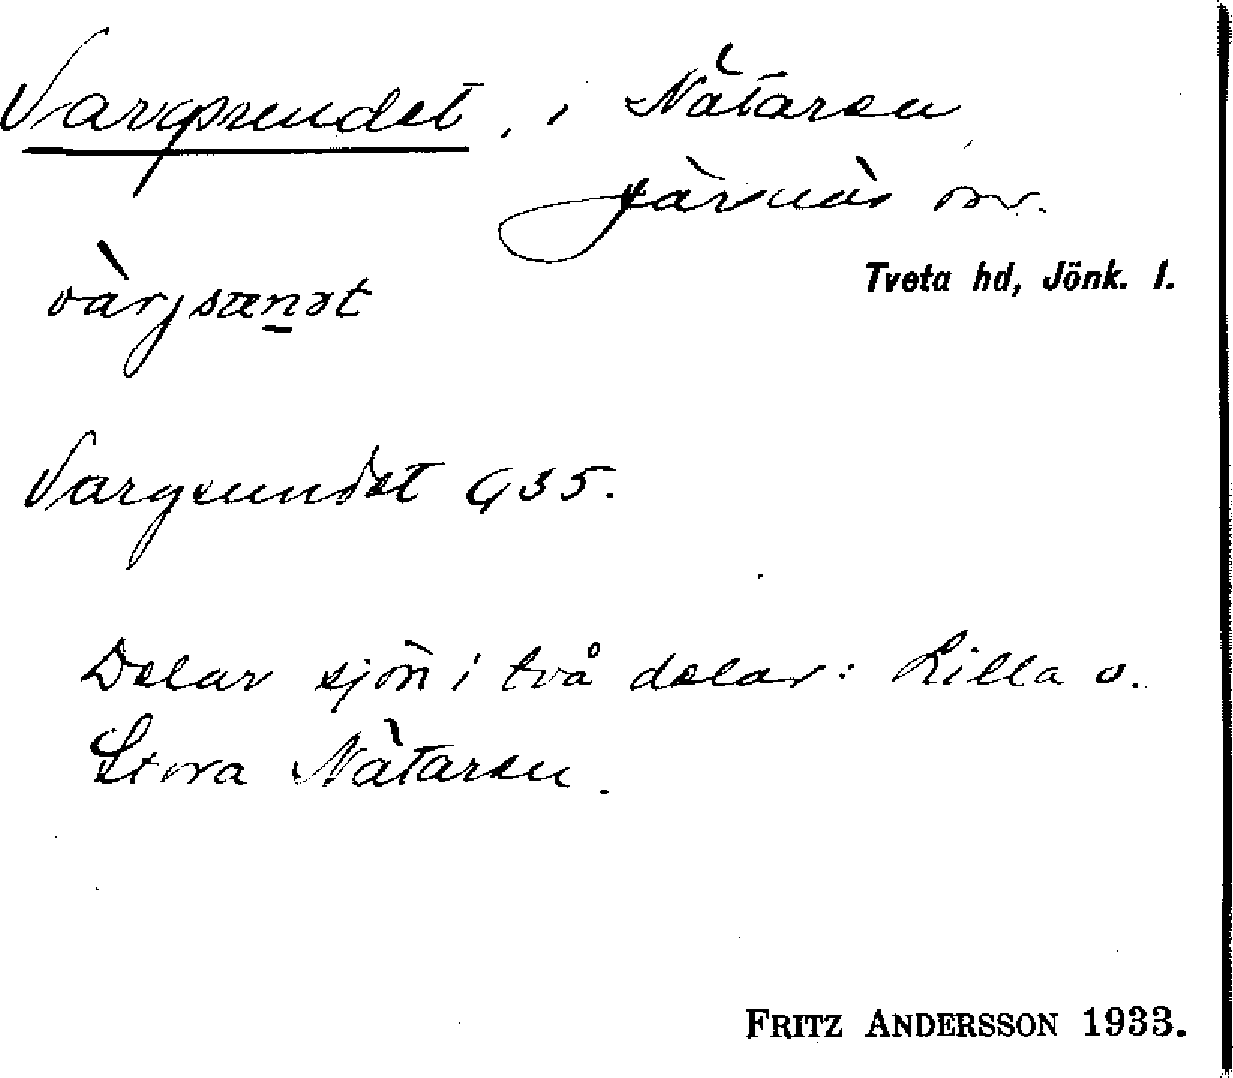 Vargsundet, i Nätaren
Järsnäs sn.
Tveta hd, Jönk. l.
vàrjsu̱nət
Vargsundet G 35.
Delar sjön i två delar: Lilla o.
Stora Nätaren.
FRITZ ANDERSSON 1933.